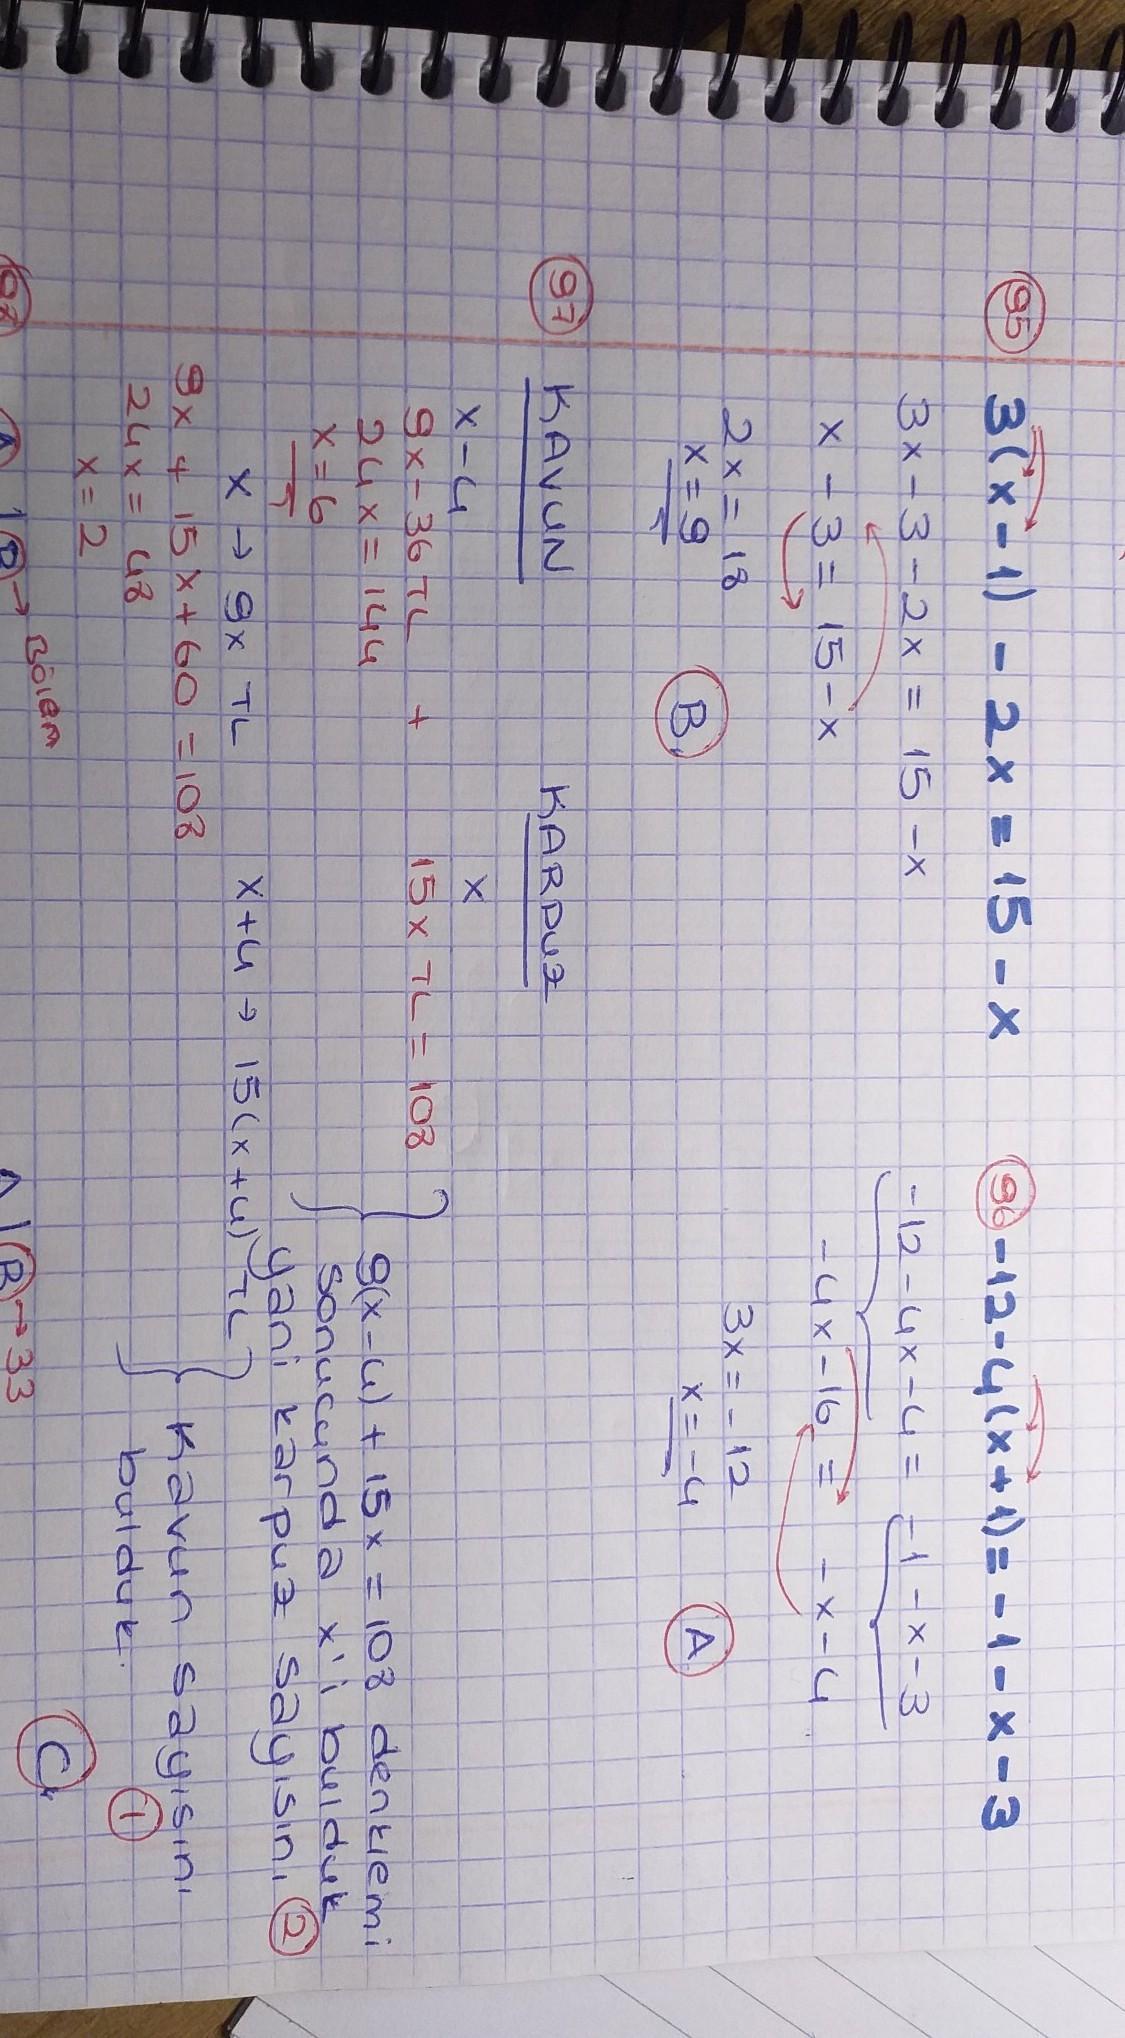 95 3(x-1) - 2x = 15 - x
3x - 3 - 2x = 15 - x
x - 3 = 15 - x
2x = 18
x = 9
B
96 -12-4(x+1) = -1-x-3
-12-4x-4 = -1-x-3
-4x-16 = -x-4
3x = -12
x = -4
A
97 KAVUN KARPUZ
x-4 x
9x-36TL + 15x TL = 108
24x = 144
x = 6
9(x-4) + 15x = 108 denklemi
sonucunda x'i bulduk
yani karpuz sayısını 2
x → 9x TL x+4 → 15(x+4) TL
9x + 15x + 60 = 108
24x = 48
x = 2
Kavun sayısını
bulduk. 1
C
98 A | B → Bölem A | B → 33